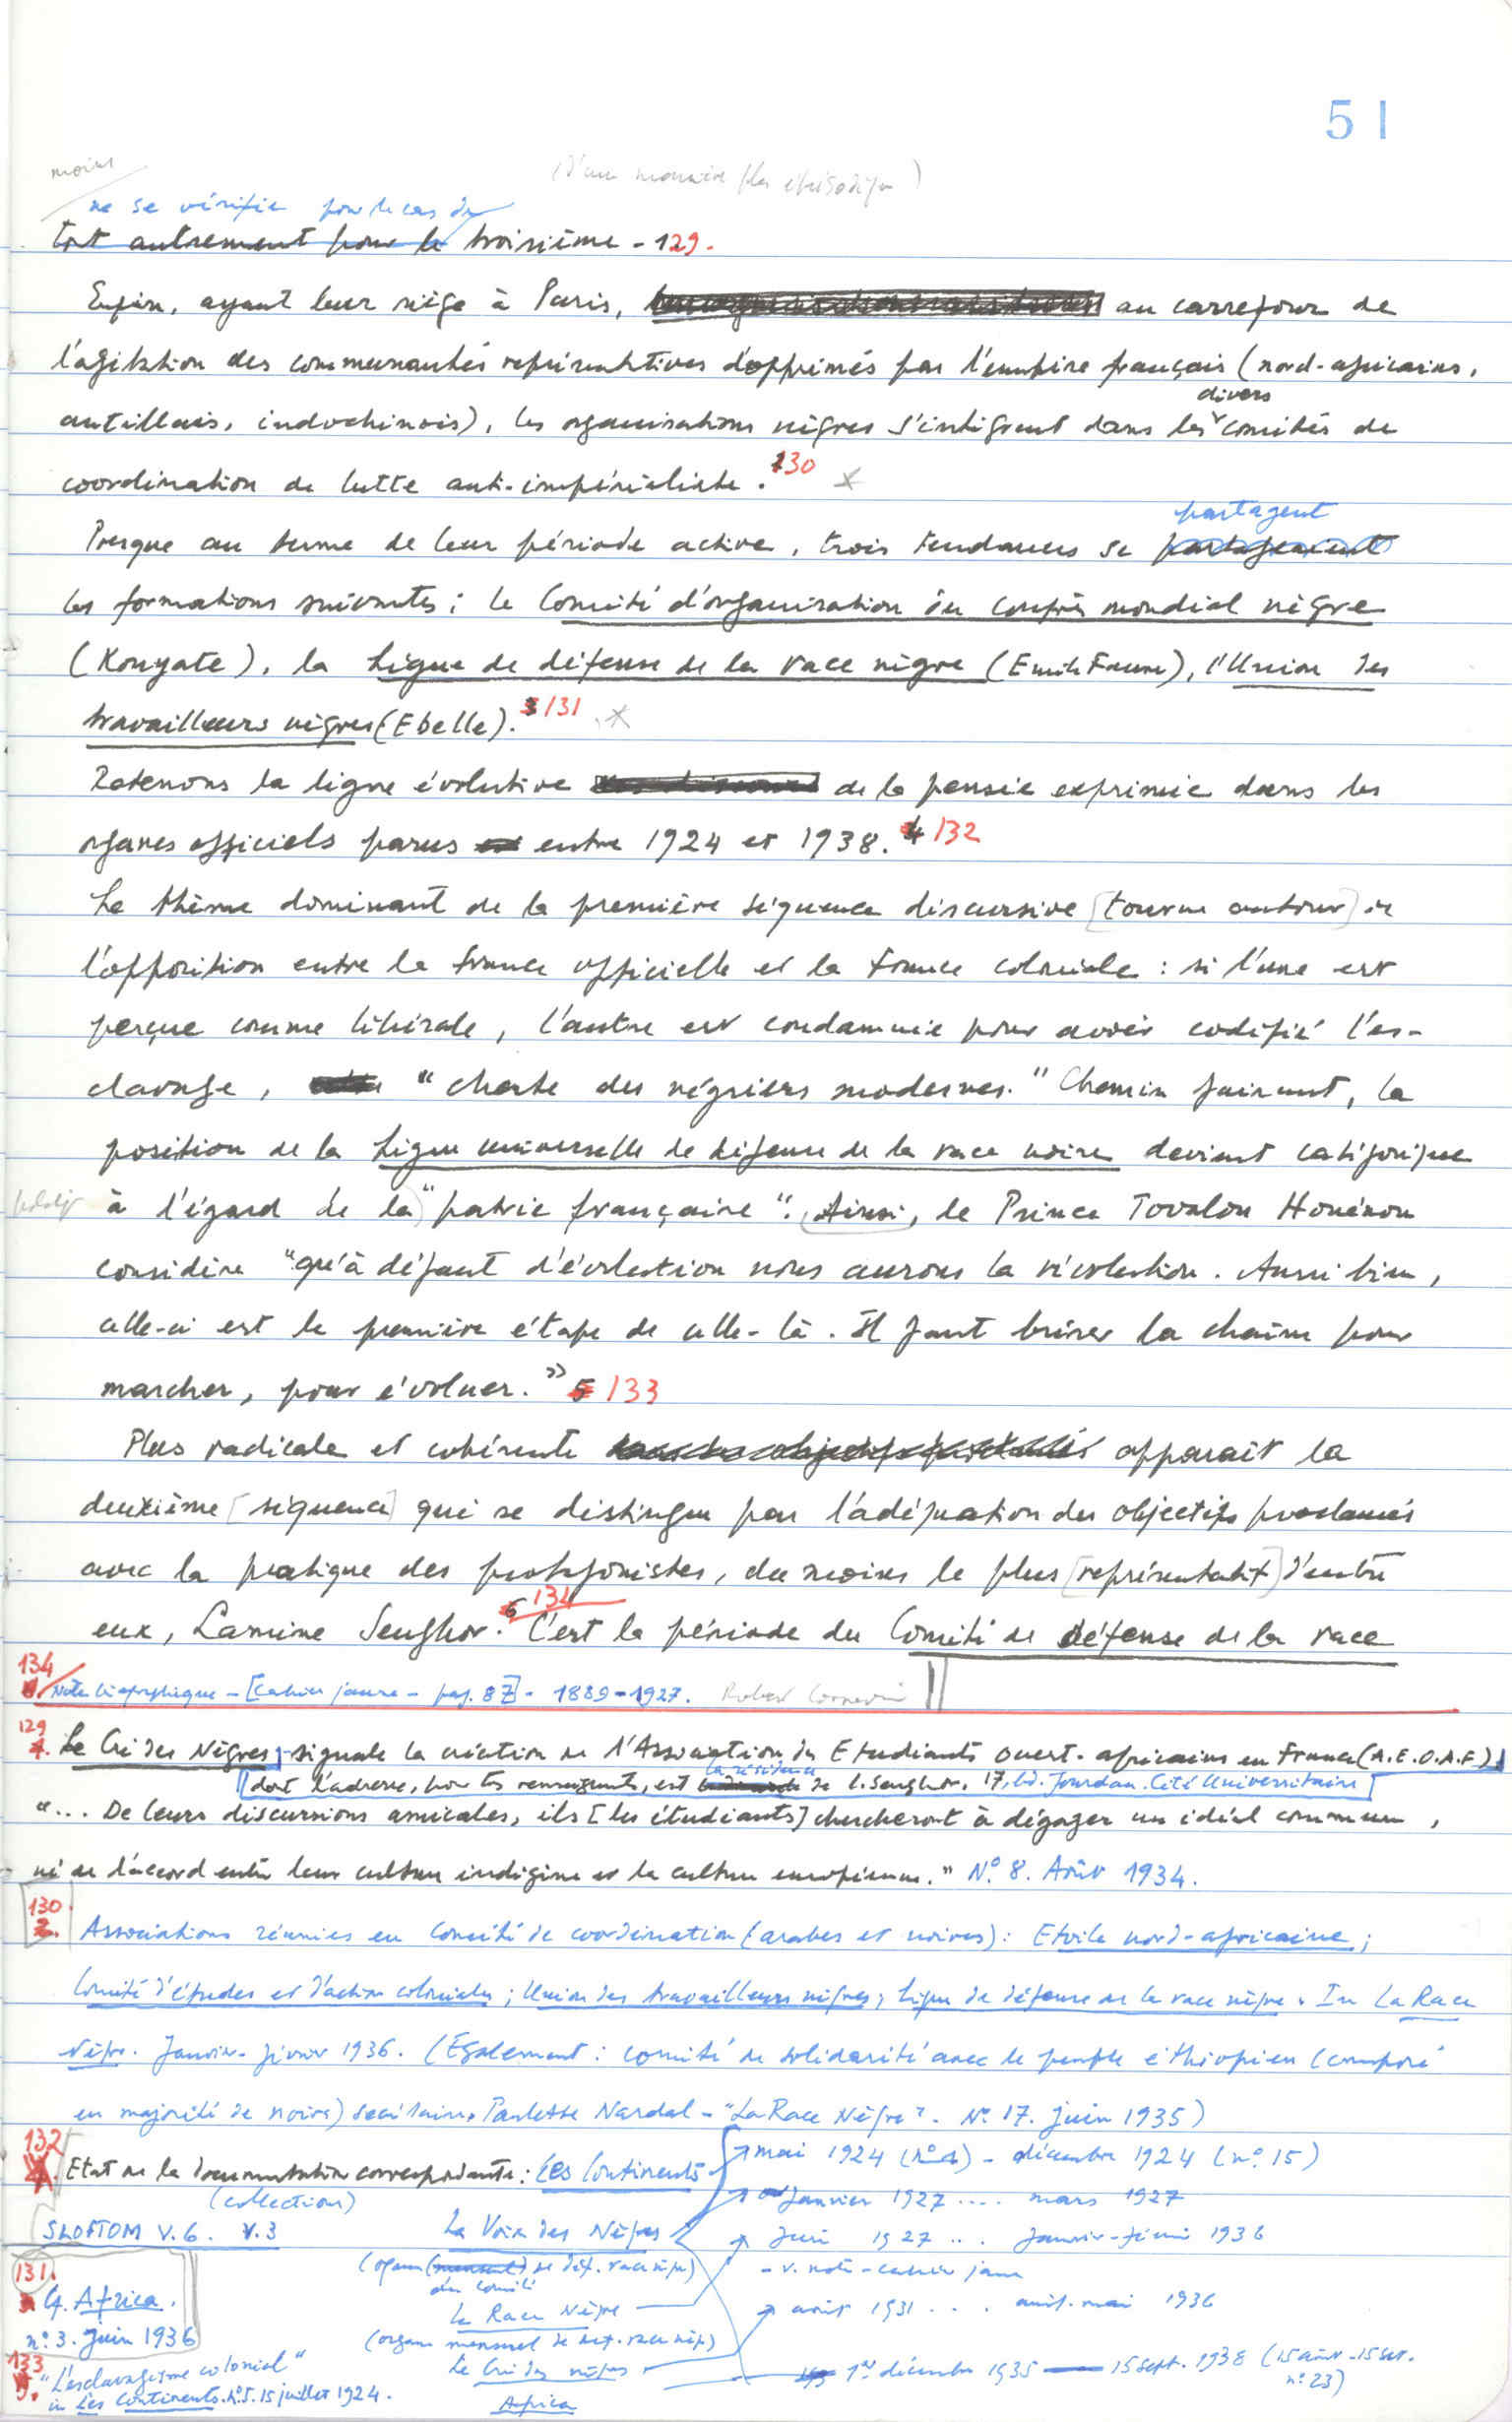 51
moins
(d'une manière plus épisodique)
ne se vérifie pour le cas du
tout autrement pour le troisième - 129.
Enfin, ayant leur siège à Paris, au carrefour de
l'agitation des communautés représentatives d'opprimés par l'empire français (nord-africains,
divers
antillais, indochinois), les organisations nègres s'intègrent dans les comités de
coordination de lutte anti-impérialiste. 130 x
partagent
Presque au terme de leur période active, trois tendances se partageaient
les formations suivantes : le Comité d'organisation du Congrès mondial nègre
(Kouyate), la Ligue de défense de la race nègre (Emile Faure), l'Union des
travailleurs nègres (Ebelle). 3 131 x
Retenons la ligne évolutive de la pensée exprimée dans les
organes officiels parus entre 1924 et 1938. 4 132
Le thème dominant de la première séquence discursive [tourne autour] de
l'opposition entre la France officielle et la France coloniale : si l'une est
perçue comme libérale, l'autre est condamnée pour avoir codifié l'es-
clavage, "charte des négriers modernes." Chemin faisant, la
position de la Ligue universelle de défense de la race noire devient catégorique
à l'égard de la "patrie française". Ainsi, le Prince Tovalou Houénou
considère "qu'à défaut d'évolution nous aurons la révolution. Aussi bien,
celle-ci est la première étape de celle-là. Il faut briser la chaîne pour
marcher, pour évoluer." 5 133
Plus radicale et cohérente apparaît la
deuxième [séquence] qui se distingue par l'adéquation des objectifs proclamés
avec la pratique des protagonistes, du moins le plus [représentatif] d'entre
eux, Lamine Senghor. 6 134 C'est la période du Comité de défense de la race
134
6. Note biographique - [Cahier jaune - pag. 87] - 1889-1927. Robert Cornevin
129
1. Le Cri des Nègres, signale la création de l'Association des Etudiants ouest-africains en France (A.E.O.A.F.)
la résidence
dont l'adresse, pour tous renseignements, est de L. Senghor, 17, bd. Jourdan. Cité Universitaire
"... De leurs discussions amicales, ils [les étudiants] chercheront à dégager un idéal commun,
né de l'accord entre leur culture indigène et la culture européenne." N° 8. Août 1934.
130.
2. Associations réunies en Comité de coordination (arabes et noires) : Etoile nord-africaine ;
Comité d'études et d'action coloniales ; Union des travailleurs nègres ; Ligue de défense de la race nègre. In La Race
Nègre. Janvier-février 1936. (Egalement : comité de solidarité avec le peuple éthiopien (composé
en majorité de noirs) secrétaire, Paulette Nardal - "La Race Nègre". N° 17. juin 1935)
132
4. Etat de la documentation correspondante : Les Continents mai 1924 (n° 1) - décembre 1924 (n° 15)
(collection) janvier 1927 .... mars 1927
SLOTFOM V.6. V.3 La Voix des Nègres Juin 1927 ... Janvier-février 1936
(organe de déf. race nègre) - v. note - cahier jaune
du Comité
131.
Cf. Africa. La Race Nègre août 1931 ... avril-mai 1936
n° 3. juin 1936 (organe mensuel de déf. race nègre)
133
5. "L'esclavagisme colonial" Le Cri des nègres 1er décembre 1935 — 15 sept. 1938 (15 août-15 sept.
n° 23)
in Les Continents. N° 5. 15 juillet 1924.
Africa